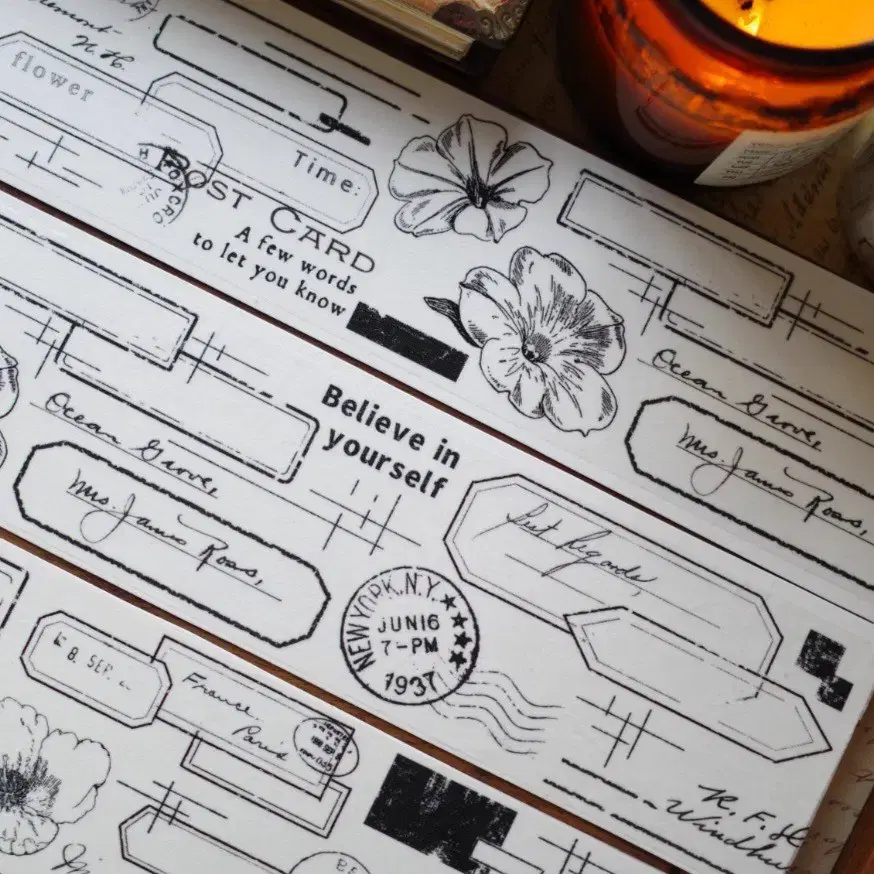 N.H.
flower
Time:
POST CARD
A few words
to let you know
Ocean Grove,
Mrs. James Ross,
Believe in
yourself
Ocean Grove,
Mrs. James Ross,
Best Regards,
NEW YORK, N.Y.
JUN 16
7-PM
1937
8. SEP.
France.
Paris
R.F.D.